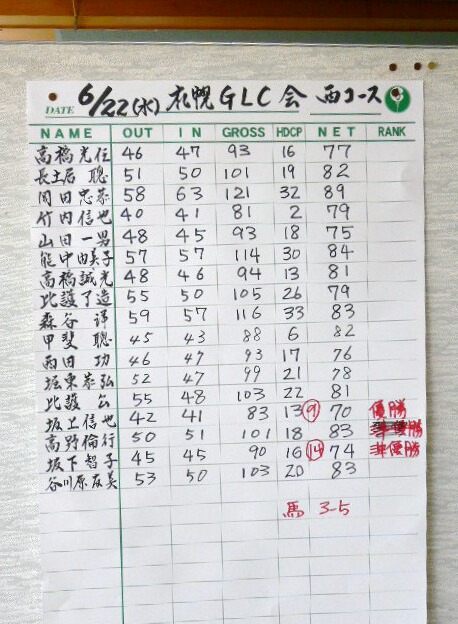 DATE 6/22(水) 札幌GLC会 西コース
NAME OUT IN GROSS HDCP NET RANK
高橋光任 46 47 93 16 77
長土居 聰 51 50 101 19 82
岡田忠恭 58 63 121 32 89
竹内信也 40 41 81 2 79
山田一男 48 45 93 18 75
能中由美子 57 57 114 30 84
高橋誠光 48 46 94 13 81
比護了造 55 50 105 26 79
森谷 59 57 116 33 83
甲斐 聰 45 43 88 6 82
西田 功 46 47 93 17 76
坂東恭弘 52 47 99 21 78
比護 公 55 48 103 22 81
坂上信也 42 41 83 13 9 70 優勝
高野倫行 50 51 101 18 83
坂下智子 45 45 90 16 14 74 準優勝
谷川原友美 53 50 103 20 83
馬 3-5